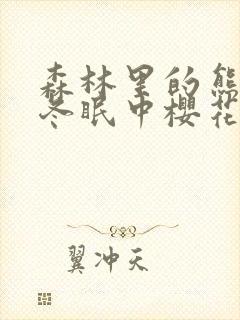 森林里的熊
冬眠中樱花
翼冲天